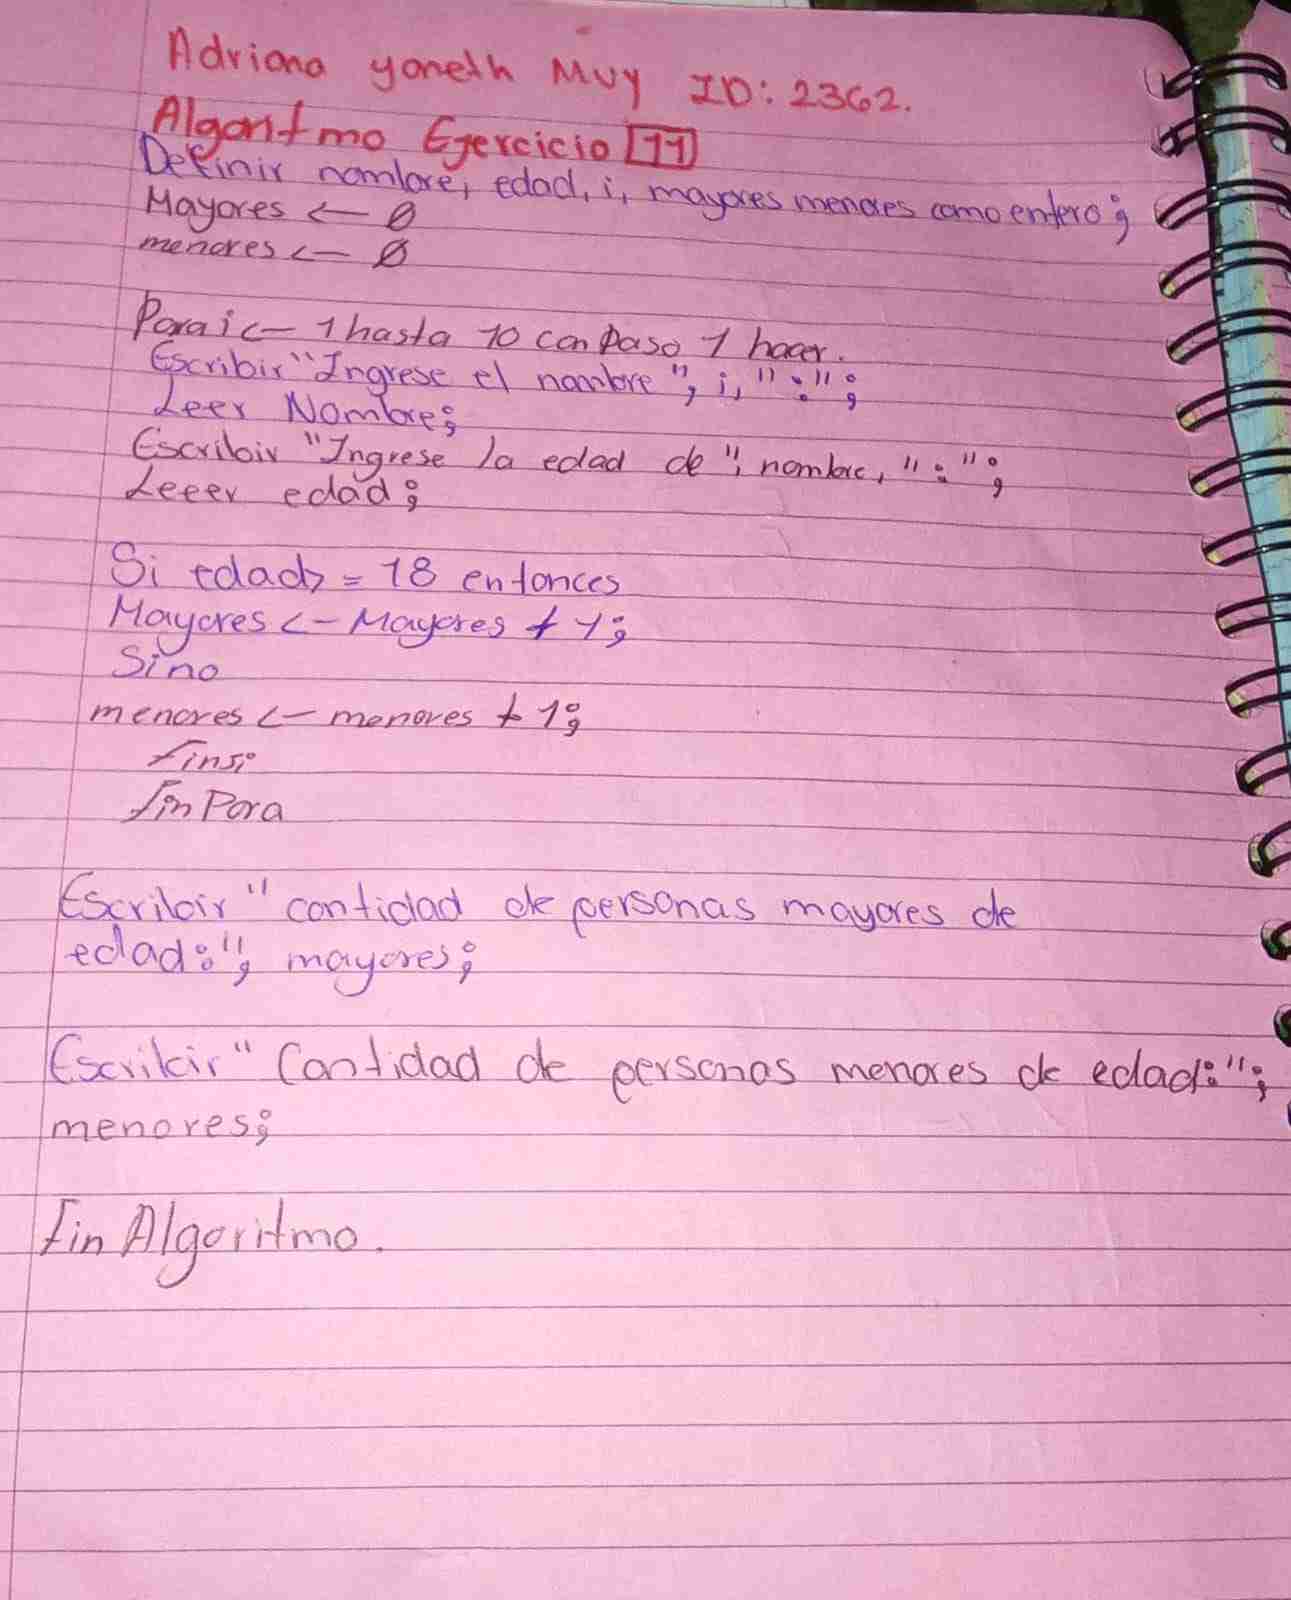 Adriana yaneth Muy ID: 2362.
Algoritmo Ejercicio 11
Definir nombre, edad, i, mayores menores como entero;
Mayores <- 0
menores <- 0
Para i <- 1 hasta 10 con paso 1 hacer.
Escribir "Ingrese el nombre", i, ":";
Leer Nombre;
Escribir "Ingrese la edad de", nombre, ":";
Leeer edad;
Si edad> = 18 entonces
Mayores <- Mayores + 1;
Sino
menores <- menores + 1;
finsi
fin Para
Escribir "cantidad de personas mayores de
edad:", mayores;
Escribir "Cantidad de personas menores de edad:";
menores;
fin Algoritmo.